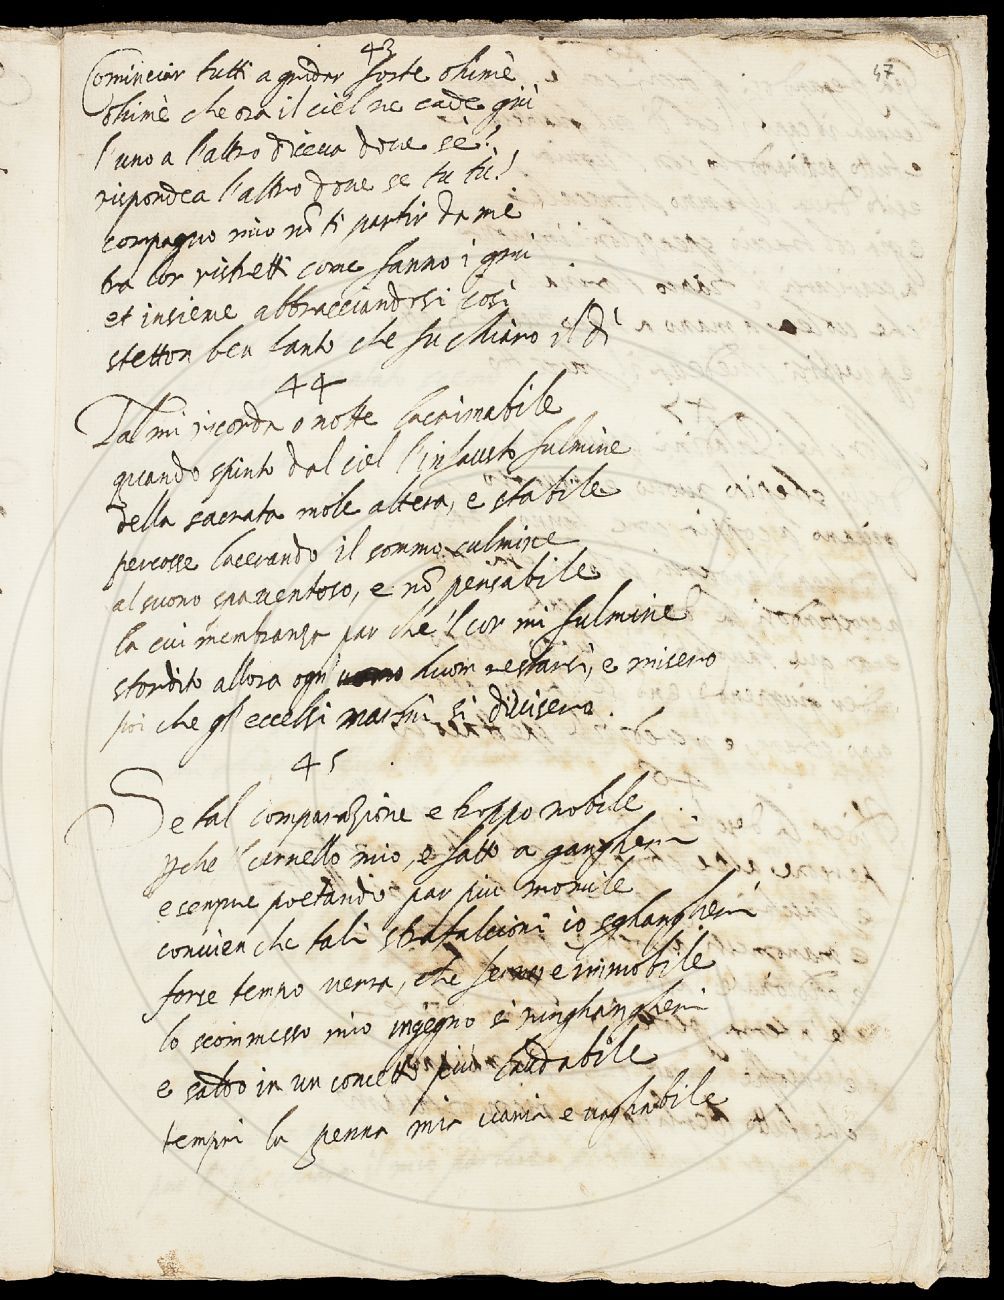 43
47
Cominciar tutti a gridar forte ohimè
ohimè che ora il ciel ne cade giù
l'uno a l'altro diceva dove sè?
rispondea l'altro dove se tu tù?
compagno mio nō ti partir da me
tra lor ristretti come fanno i grui
et insieme abbracciandosi così
stetton ben tanto che fu chiaro il dì
44
Tal mi ricorda o notte lacrimabile
quando spinto dal ciel l'infausto fulmine
della sacrata mole altera, e stabile
percosse lacerando il sommo culmine
al suono spaventoso, e nō pensabile
la cui membranza par che 'l cor mi fulmine
stordito allora ogn' huom restarsi, e misero
poi che gl'eccelsi marmi si divisero.
45
Se tal comparazione e troppo nobile
che 'l cervello mio, e fatto a gangheri
e sempre poetando par più mobile
convien che tali strafalcioni io sghangheri
forse tempo verra, che e immobile
lo scommesso mio ingegno si ringhangheri
e saldo in un concetto più laudabile
tempri la penna mia varia e vaghabile